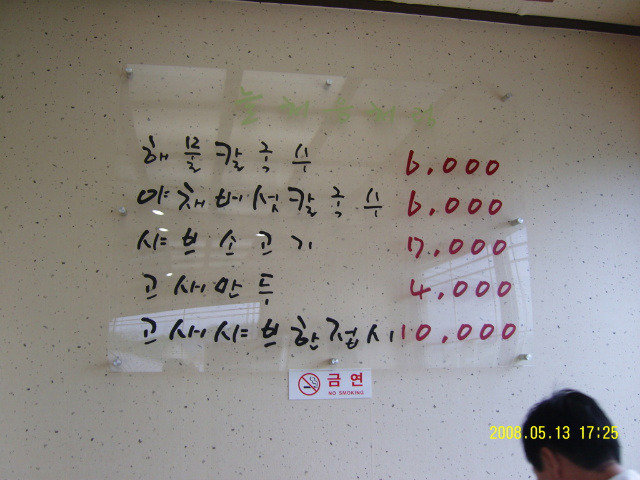 해물칼국수 6,000
야채버섯칼국수 6,000
샤브소고기 7,000
고새만두 4,000
고새샤브한접시 10,000
금연
NO SMOKING
2008.05.13 17:25